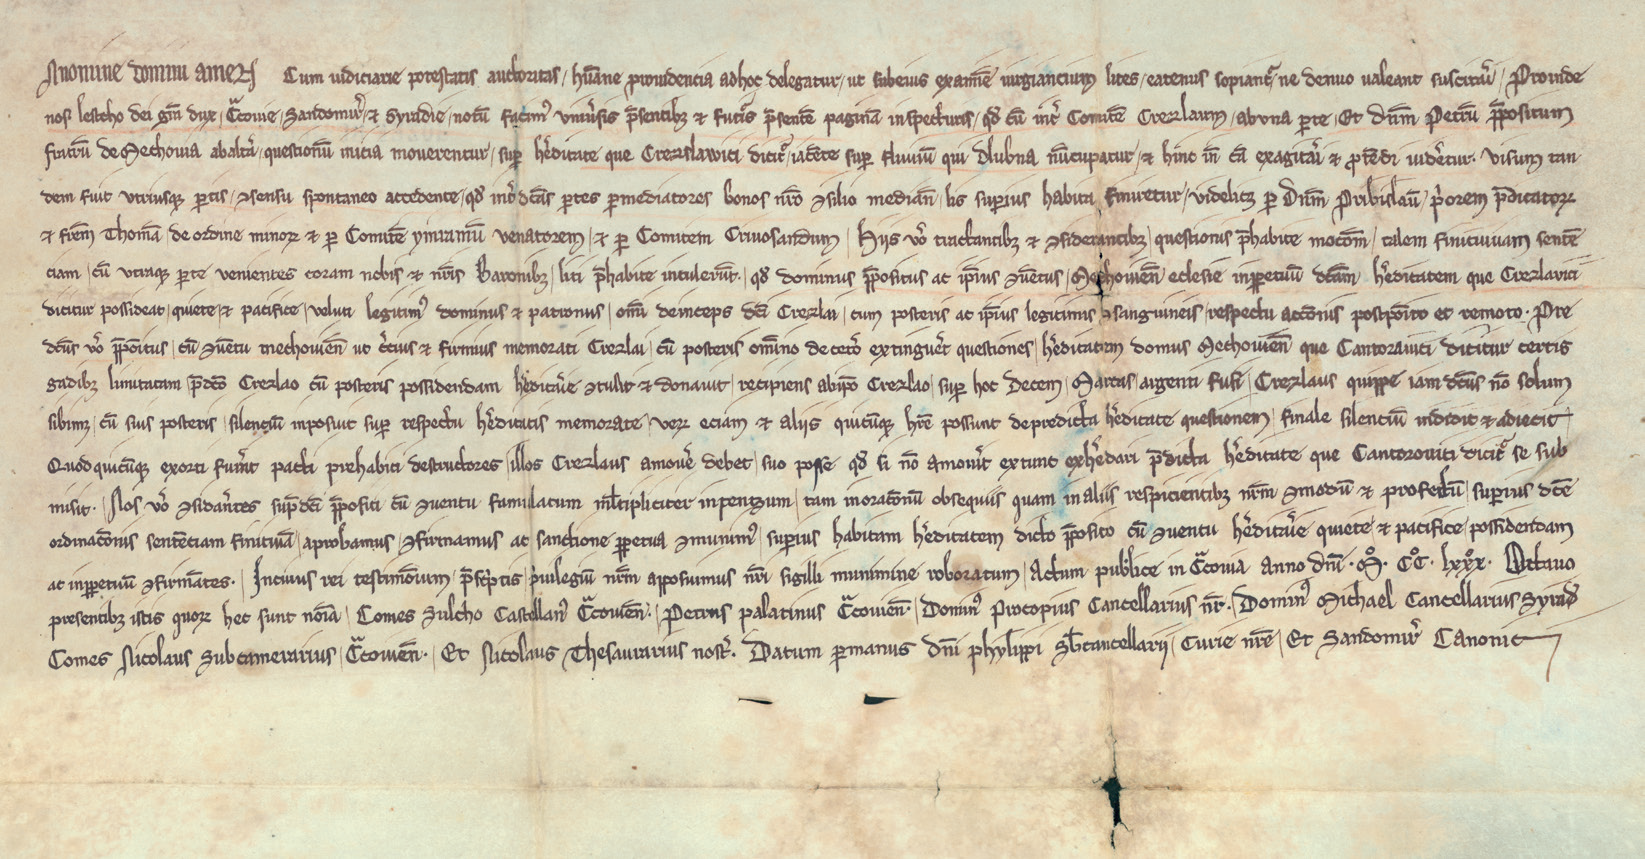 Jn nomine domini amen Cum iudiciarie potestatis auctoritas / hu̅ane prouidencia ad hoc delegatur / ut sub eius exami̅e iurgiancium lites / eatenus sopiant᷑ ne denuo ualeant suscitari / Proinde
nos lestcho dei gr̅a dux / C͛couie / Sandomir̅ / ⁊ Syradie / notu̅ facim᷒ vniu͛sis p̅sentib᷒ ⁊ futur͛ p̅sente̅ pagina̅ inspecturis / qd̅ cu̅ int͛ Comite̅ Crezlaum / ab vna p̲te / Et dn̅m Petru̅ p̅positum
fratru̅ de Mechouia ab alt͛a / questionu̅ inicia mouerentur / sup̲ h͛editate que Crezslawici dicit᷑ / iace̅te sup̲ fluuiu̅ qui dlubna nu̅cupatur / ⁊ hinc in̅ ca̅ exagitari ⁊ p̲te̅di uid͛etur. Visum tan
dem fuit vtriusq᷒ p̲tis / ꝯsensu spontaneo accedente / qd̅ int͛ dc̅as p̲tes p̲ mediatores bonos nr̅o ꝯsilio median̅ / lis sup̲ius habita finiretur / videlicet p̲ Dn̅m Pribislau̅ / p͛orem p̅dicatorꝝ
⁊ fr̅em Thoma̅ de ordine minorꝝ ⁊ p̲ Comite̅ ymiramu̅ venatorem / ⁊ p̲ Comitem Criuosandum / Hiis v͛o tractantib᷒ ⁊ ꝯsiderantib᷒ / questionis p̅habite moto̅m / talem finitiuam sente̅
ciam / cu̅ vtraq᷒ p̲te venientes coram nobis ⁊ nr̅is Baronib᷒ / liti p̅habite intuleru̅t. qd̅ dominus p̅positus ac ip̅ius ꝯue̅tus / Mechouien̅ eclesie in p̲petuu̅ dc̅am h͛editatem que Crezlauici
dicitur possideat / quiete / ⁊ pacifice / veluti legitim᷒ dominus ⁊ patronus / om̅i deinceps dc̅i Crezlai / cum posteris ac ip̅ius legitimis ꝯsanguineis / respectu acc̅onis postpo̅ito et remoto. Pre
dc̅us v͛o p̅po̅itus / cu̅ ꝯue̅tu mechouien̅ ut c͛cius ⁊ firmius memorati Crezlai / cu̅ posteris om̅ino de cet͛o extinguer̅t questiones / h͛editatem domus Mechouien̅ que Cantorauici dicitur certis
gadib᷒ limitatam p̅dc̅o Crezlao cu̅ posteris possidendam h͛editar̅ie ꝯtulit ⁊ donauit / recipiens ab ip̅o Crezlao / sup̲ hoc Decem / Marcas / argenti fusi / Crezlaus quippe iam dc̅us no̅ solum
sibimꝫ / cu̅ suis posteris / silenciu̅ inposuit sup̲ respectu h͛editatis memorate / verꝝ eciam ⁊ aliis quicu̅q᷒ hr̅e possunt de predicta h͛editate questionem / finale silenciu̅ indidit ⁊ adiecit /
Quod quicu̅q᷒ exorti fuer̅t pacti prehabiti destructores / illos Crezlaus amou͛e debet / suo posse qd̅ si no̅ amou͛it extunc exh͛edari p̅dicta h͛editate que Cantorouici dicit᷑ se sub
misit. Nos v͛o ꝯsid͛antes sup̲dc̅i p̅positi cu̅ ꝯuentu famulatum ml̅tipliciter inpensum / tam in orac̅onu̅ obsequiis quam in aliis respicientib᷒ nr̅m ꝯmodu̅ ⁊ profectu̅ / sup̲ius dc̅e
ordinac̅onis sente̅ciam finitiua̅ / aprobamus / ꝯfirmamus ac sanctione p̲petua ꝯmunim᷒ / sup̲ius habitam h͛editatem dicto p̅posito cu̅ ꝯuentu h͛editar̅ie quiete / ⁊ pacifice / possidendam
ac in p̲petuu̅ ꝯfirma̅tes. In cuius rei testimo̅ium / p̅sc͛ptis / p͛uilegiu̅ nr̅m apposuimus nr̅i sigilli munimine roboratum / Actum publice in C͛couia anno dn̅i. M̊. C̊C̊. lxxx̊. Octauo
presentib᷒ istis quorꝝ hec sunt no̅ia / Comes Sulcho Castellan᷒ C͛couien̅. / Petrus palatinus C͛couien̅. / Domin᷒ Procopius Cancellarius nr̅. / Domin᷒ Michael Cancellarius Syrad̅
Comes Nicolaus Subcamerarius / C͛couien̅. / Et Nicolaus Thesaurarius nost͛. Datum p̲ manus dn̅i phylippi Sb̅cancellarii / Curie nr̅e / Et Sandomir̅ Canonic